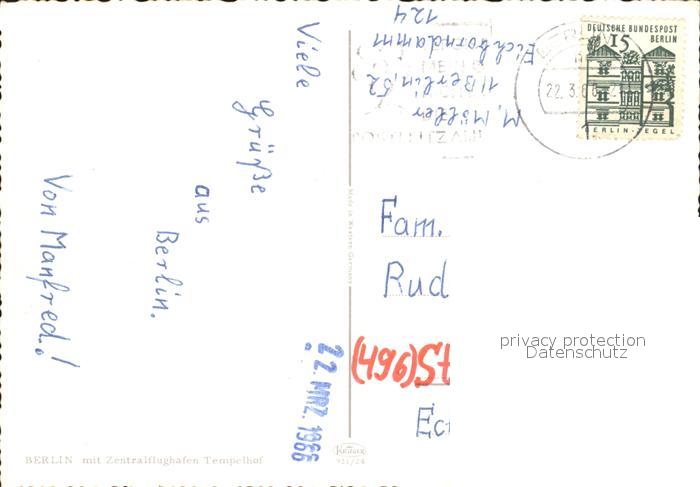 Viele
Grüße
aus
Berlin.
Von Manfred.!
BERLIN mit Zentralflughafen Tempelhof
22. MRZ. 1966
Krüger
921/24
M. Möller
1 Berlin, 52
Eichborndamm
124
DEUTSCHE BUNDESPOST
BERLIN
15
BERLIN-TEGEL
22.3.66
Fam.
Rud
(496) St
privacy protection
Datenschutz